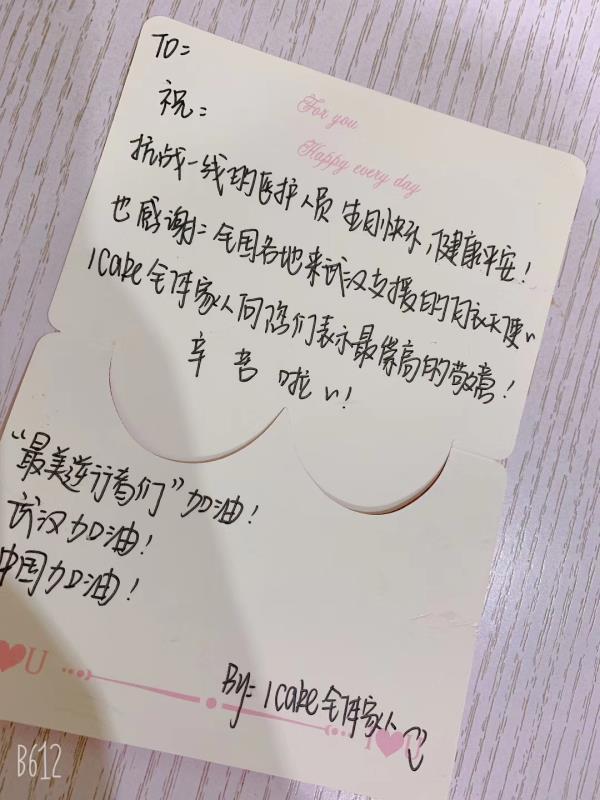 TO:
For you
祝:
Happy every day
抗战一线的医护人员生日快乐,健康平安!
也感谢:全国各地来武汉支援的白衣天使~
icake全体家人向您们表示最崇高的敬意!
辛苦啦~!
“最美逆行者们”加油!
武汉加油!
中国加油!
U
By: icake全体家人
I U
B612